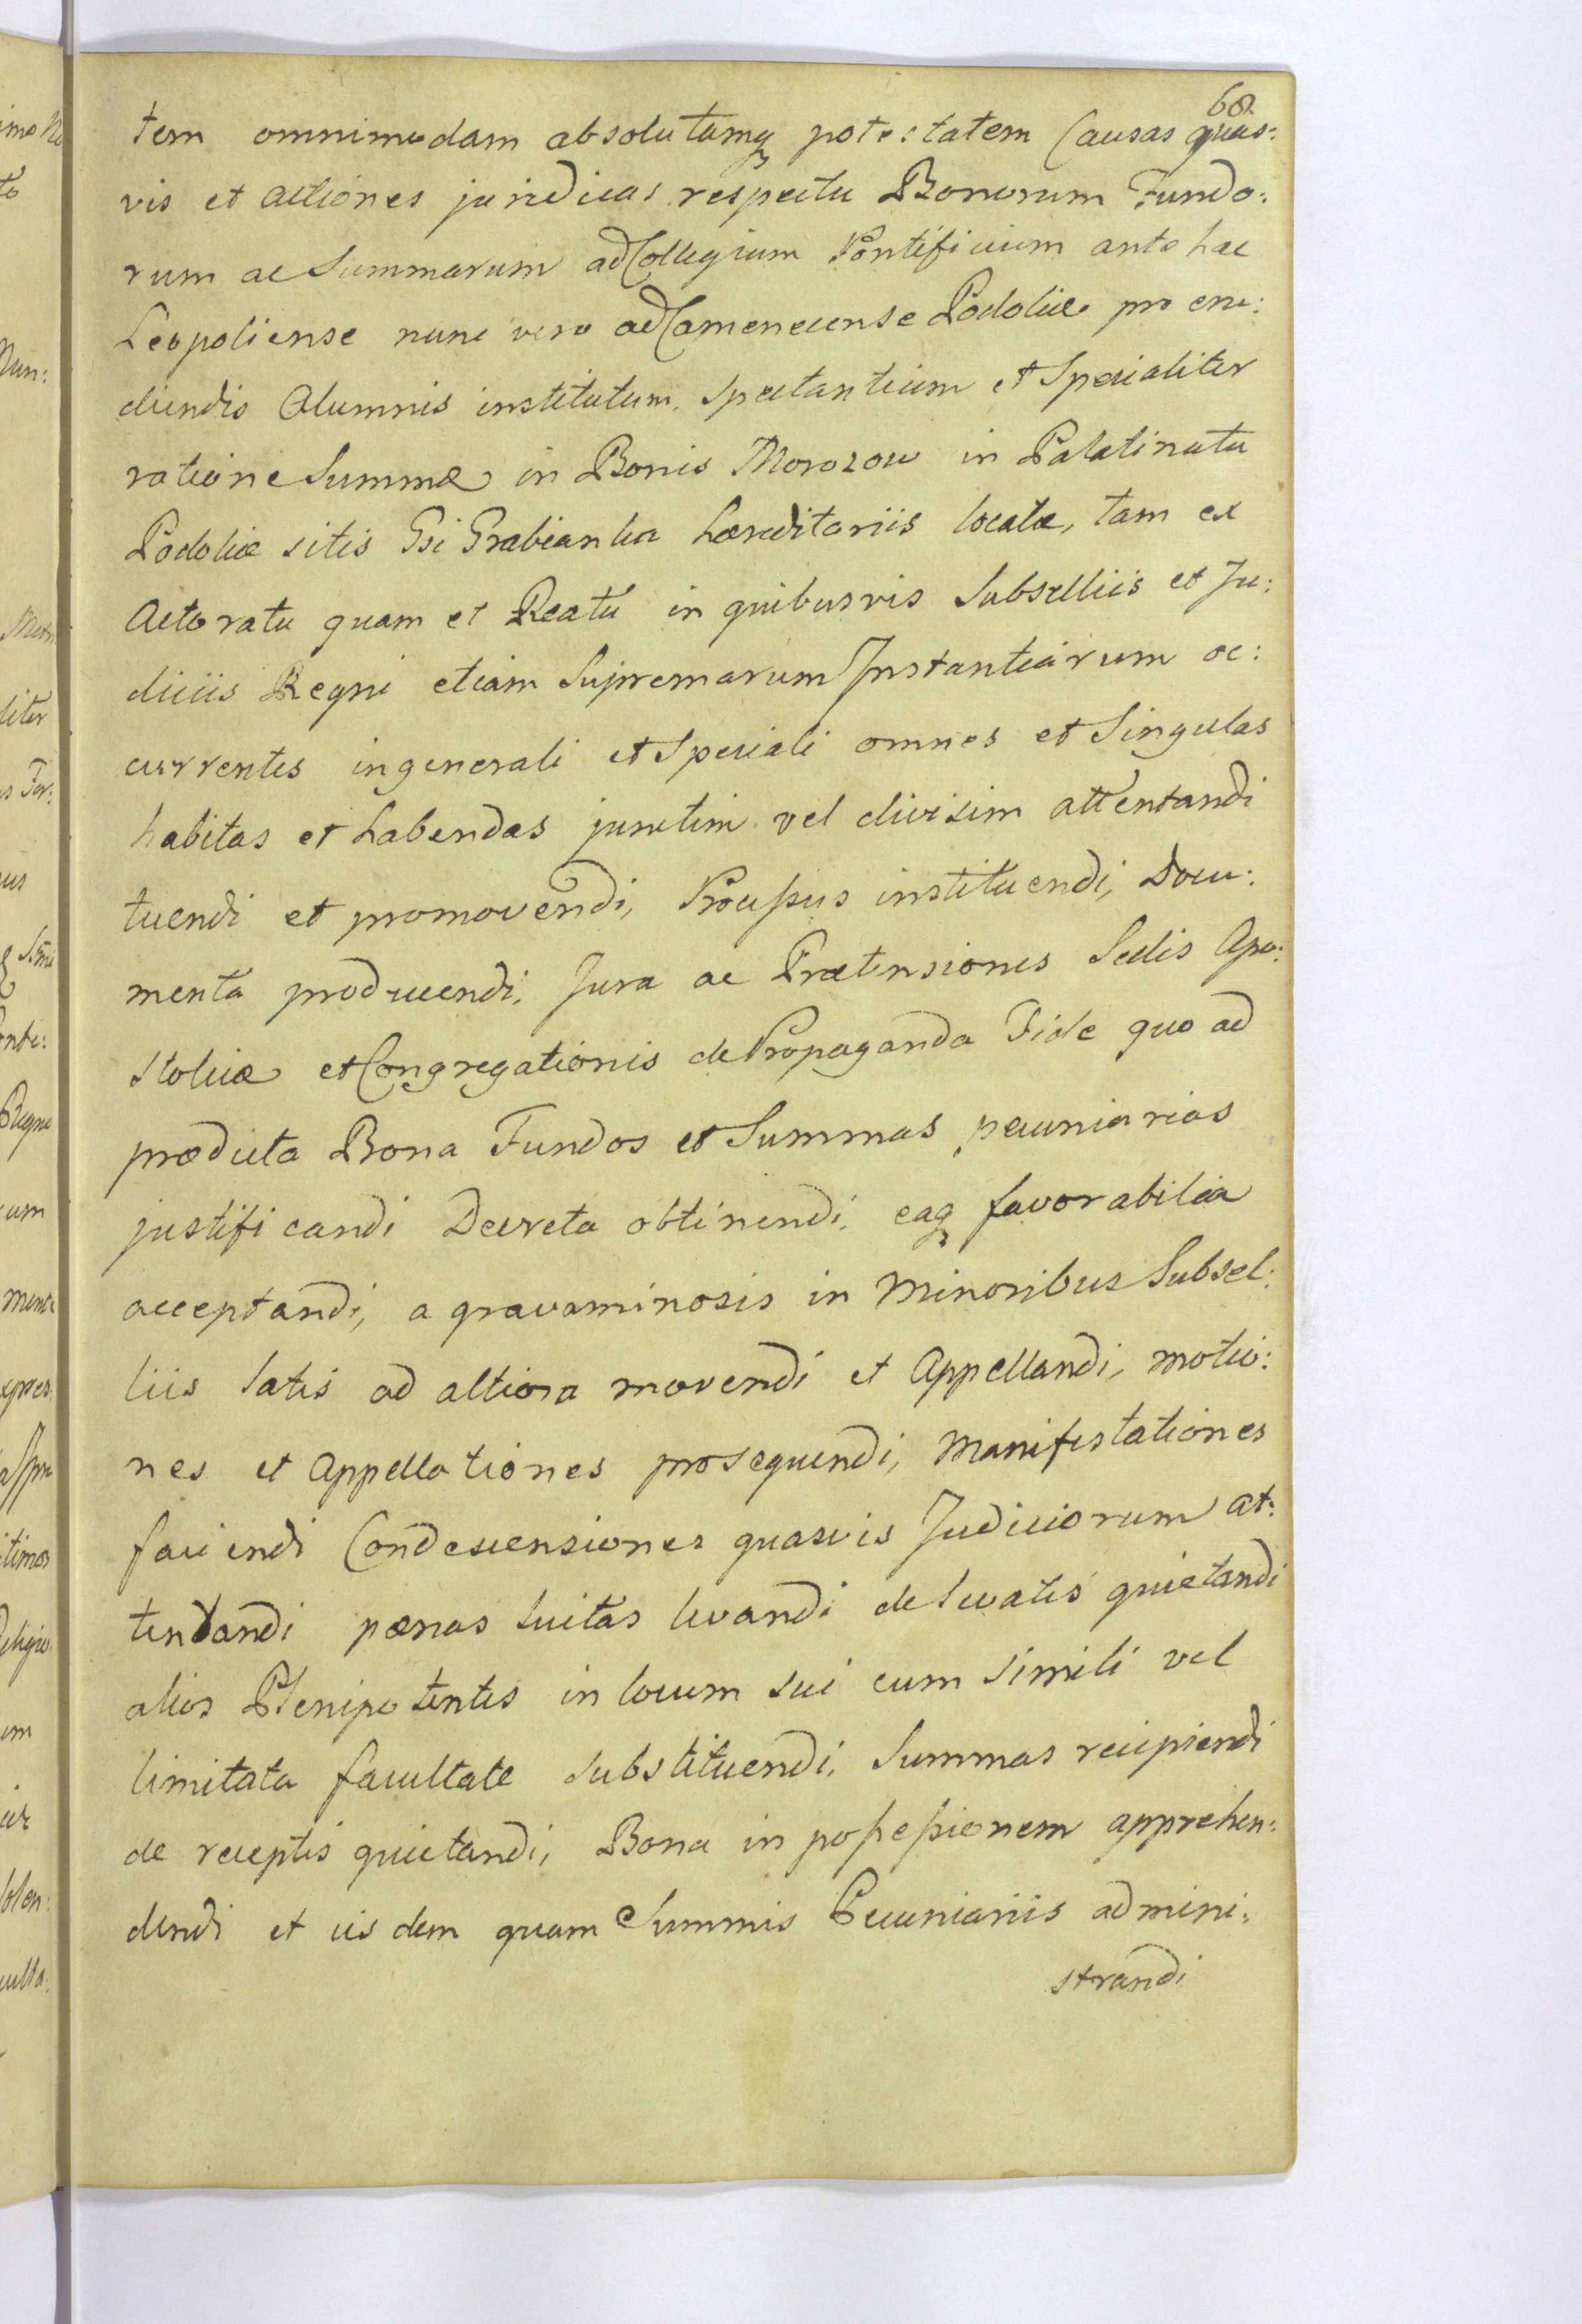 68.
tem omnimodam absolutamq potestatem Causas quas:
vis et actiones juridicas respectu Bonorum Fundo:
rum ac Summarum ad Collegium Pontificium ante hac
Leopoliense nunc vero ad Camenecense Podoliæ pro eru:
diendis Alumnis institutum, spectantium et Specialiter
ratione Summæ in Bonis Morozow in Palatinatu
Podoliæ sitis Gsi Grabianka hæreditariis locatæ, tam ex
Actoratu quam et Reatu in quibusvis Subselliis et Ju:
diciis Regni etiam Supremarum Instantiarum oc:
currentes in generali et Speciali omnes et Singulas
habitas et habendas junctim vel divisim attentandi
tuendi et promovendi, Processus instituendi, Docu:
menta producendi, Jura ac Prætensiones Sedis Apo:
stolicæ et Congregationis de Propaganda Fide quo ad
prædicta Bona Fundos et Summas pecuniarias
justificandi Decreta obtinendi, eaq favorabilia
acceptandi, a gravaminosis in Minoribus Subsel:
liis latis ad altiora movendi et Appellandi, motio:
nes et Appellationes prosequendi, Manifestationes
faciendi Condescensiones quasvis Judiciorum at:
tentandi pœnas luitas levandi de levatis quietandi
alios Plenipotentes in locum sui cum simili vel
limitata facultate substituendi, Summas recipiendi
de receptis quietandi, Bona in possessionem apprehen:
dendi et iisdem quam Summis Pecuniariis admini:
strandi